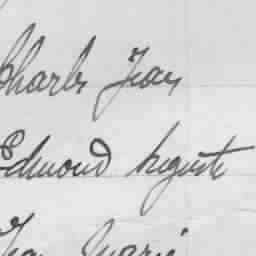 Charles Jean
Edmond Auguste
Marie